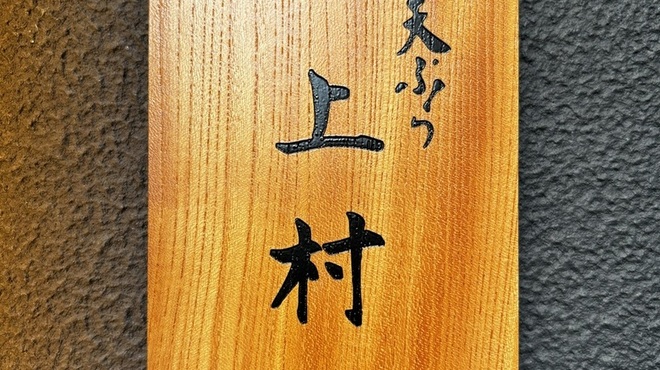 天ぷら
上村